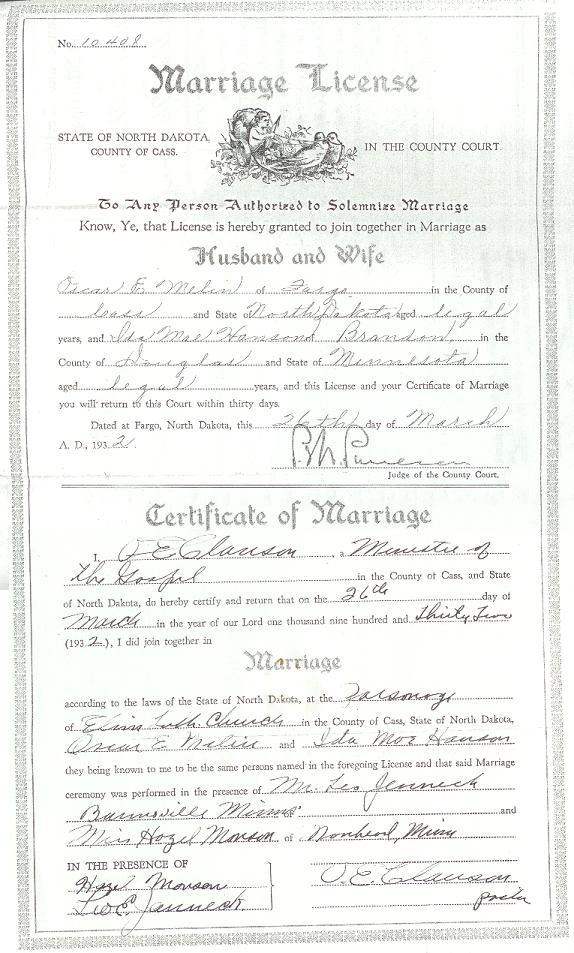 No. 10408
Marriage License
STATE OF NORTH DAKOTA,
COUNTY OF CASS.
IN THE COUNTY COURT.
To Any Person Authorized to Solemnize Marriage
Know, Ye, that License is hereby granted to join together in Marriage as
Husband and Wife
Oscar E. Melin of Fargo in the County of
Cass and State of North Dakota aged legal
years, and Ida Mae Hanson of Brandon, in the
County of Douglas and State of Minnesota
aged legal years, and this License and your Certificate of Marriage
you will return to this Court within thirty days.
Dated at Fargo, North Dakota, this 26th day of March
A. D., 1932.
P. M.
Judge of the County Court.
Certificate of Marriage
I, O E Clauson, a Minister of
the Gospel in the County of Cass, and State
of North Dakota, do hereby certify and return that on the 26th day of
March in the year of our Lord one thousand nine hundred and Thirty Two
(1932.), I did join together in
Marriage
according to the laws of the State of North Dakota, at the Parsonage
of Elim Luth. Church in the County of Cass, State of North Dakota,
Oscar E Melin and Ida Mae Hanson
they being known to me to be the same persons named in the foregoing License and that said Marriage
ceremony was performed in the presence of Mr. Leo Jenneck
Minn. and
Miss Hazel Monson of Minn
IN THE PRESENCE OF
Hazel Monson
Leo E. Jenneck.
O. E. Clauson
pastor